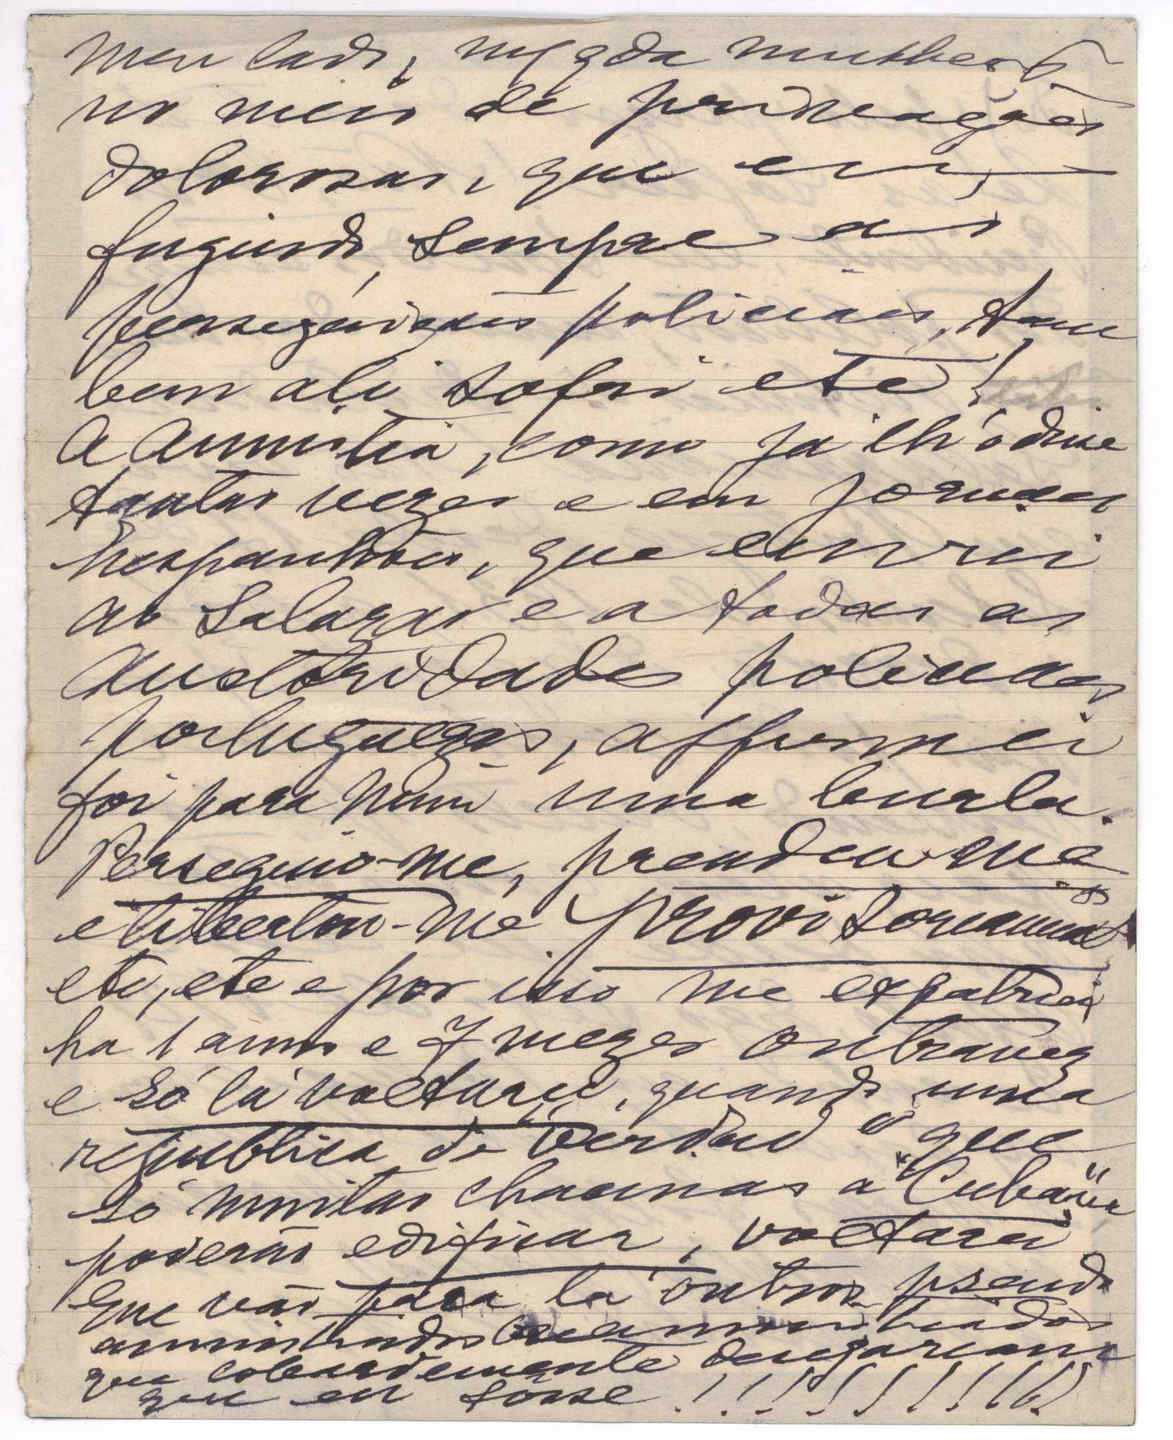 meu lado, e da mulher
no meio de privações
dolorosas, que eu,
fugindo, sempre as
perseguições policiais, tam
bem ali sofri etc!
A amnistia, como já lh'o disse
tantas vezes e em jornaes
hespanhoes, que enviei
ao Salazar e a todas as
auctoridades policiaes
portuguezas, affirmei
foi para mim uma burla.
Perseguio-me, prendeu-me
e libertou-me provisoriamente
etc, etc e por isso me expatriei
ha 1 anno e 7 mezes outravez
e só lá voltarei, quando uma
republica de "verdad" e que
só muitas chacinas á "Cubana"
poderão edificar, voltarei
Que vão para lá outros pseudo
amnistiados
que cobardemente desejariam
que eu fosse !!!!!!!!!!!